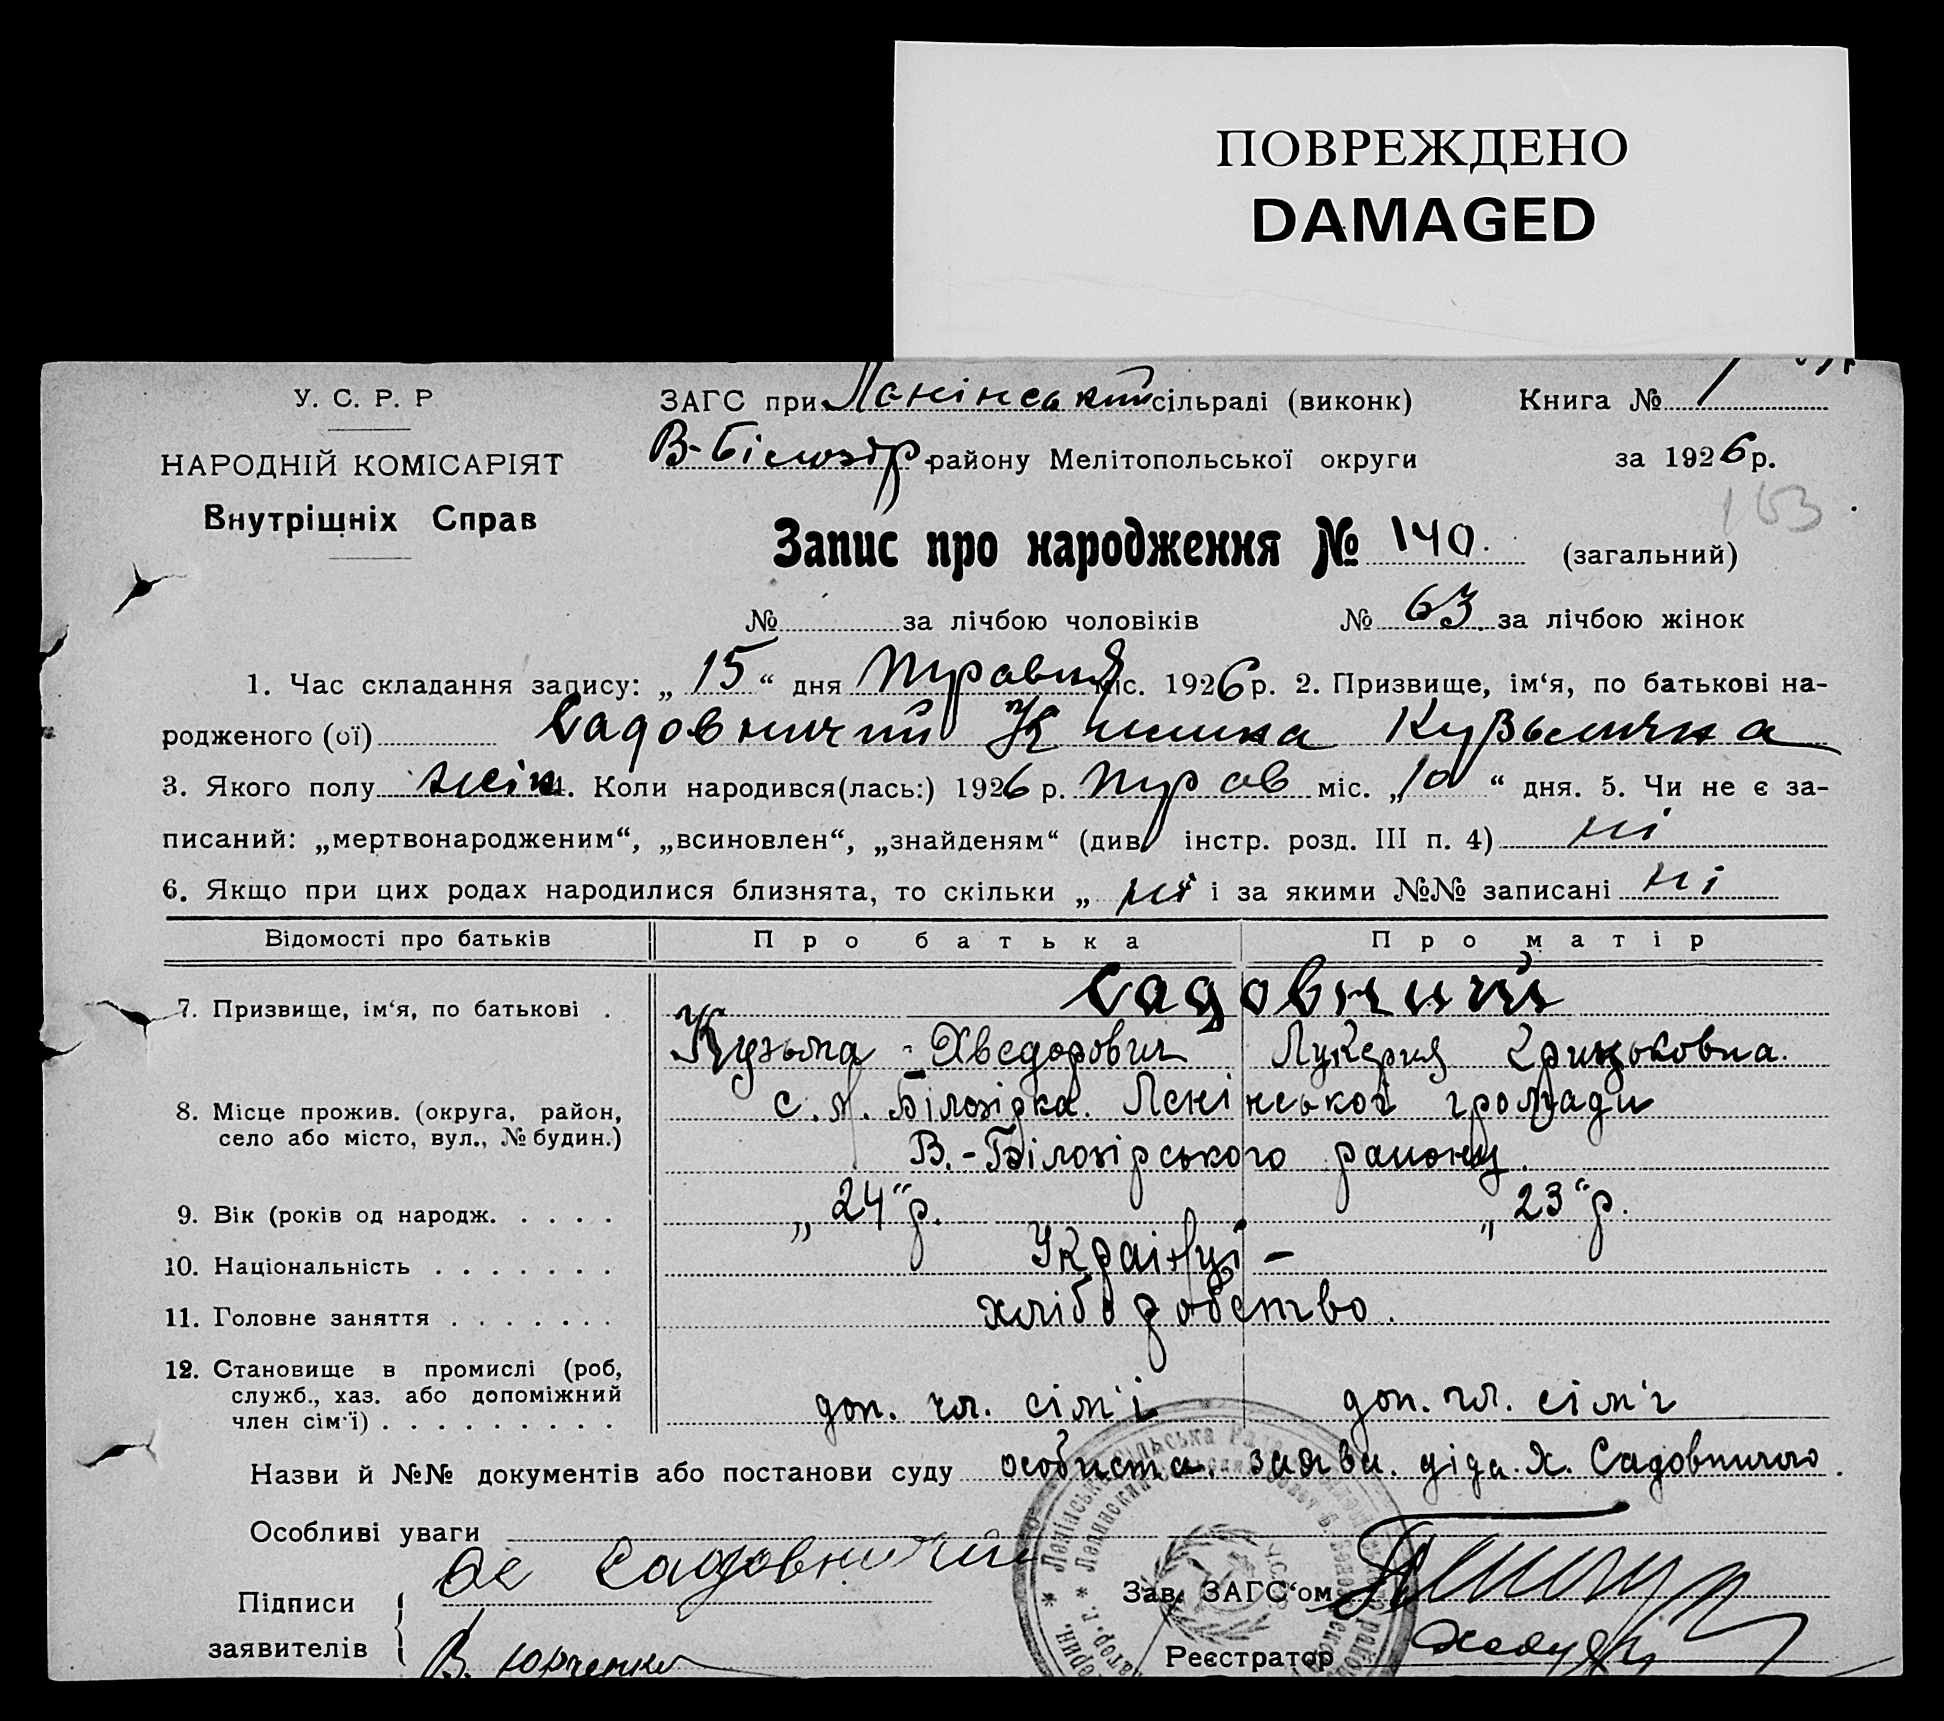 ПОВРЕЖДЕНО
DAMAGED
У. С. Р. Р
НАРОДНІЙ КОМІСАРІЯТ
Внутрішніх Справ
ЗАГС при Ленінський сільраді (виконк) Книга № 1
В-Білозір. району Мелітопольської округи за 1926 р.
163
Запис про народження № 140. (загальний)
№ за лічбою чоловіків № 63 за лічбою жінок
1. Час складання запису: „ 15 “ дня травня міс. 1926 р. 2. Призвище, ім‘я, по батькові на-
родженого (ої) Садовничий Кузьмична
3. Якого полу жін 4. Коли народився(лась:) 1926 р. трав міс. „ 10 “ дня. 5. Чи не є за-
писаний: „мертвонародженим“, „всиновлен“, „знайденям“ (див інстр. розд. III п. 4) ні
6. Якщо при цих родах народилися близнята, то скільки „ ні і за якими №№ записані ні
Відомості про батьків Про батька Про матір
7. Призвище, ім‘я, по батькові . Садовничий
Кузьма - Хведорович Лукерия Грицьковна.
8. Місце прожив. (округа, район, село або місто, вул., № будин.) с. Білозірка. Ленінської громади
В.-Білозірського району.
9. Вік (років од народж. . . . . „ 24 “ р. „ 23 “ р.
10. Національність . . . . . . . Українці -
11. Головне заняття . . . . . . . хліборобство.
12. Становище в промислі (роб, служб., хаз. або допоміжний член сім‘ї) . . . . . . . . . доп. чл. сім'ї доп. чл. сім'ї
Назви й №№ документів або постанови суду особиста. заява. діда. Х. Садовничого.
Особливі уваги
Підписи заявителів
Садовничий
В. Юрченко
Зав. ЗАГС‘ом
Реєстратор